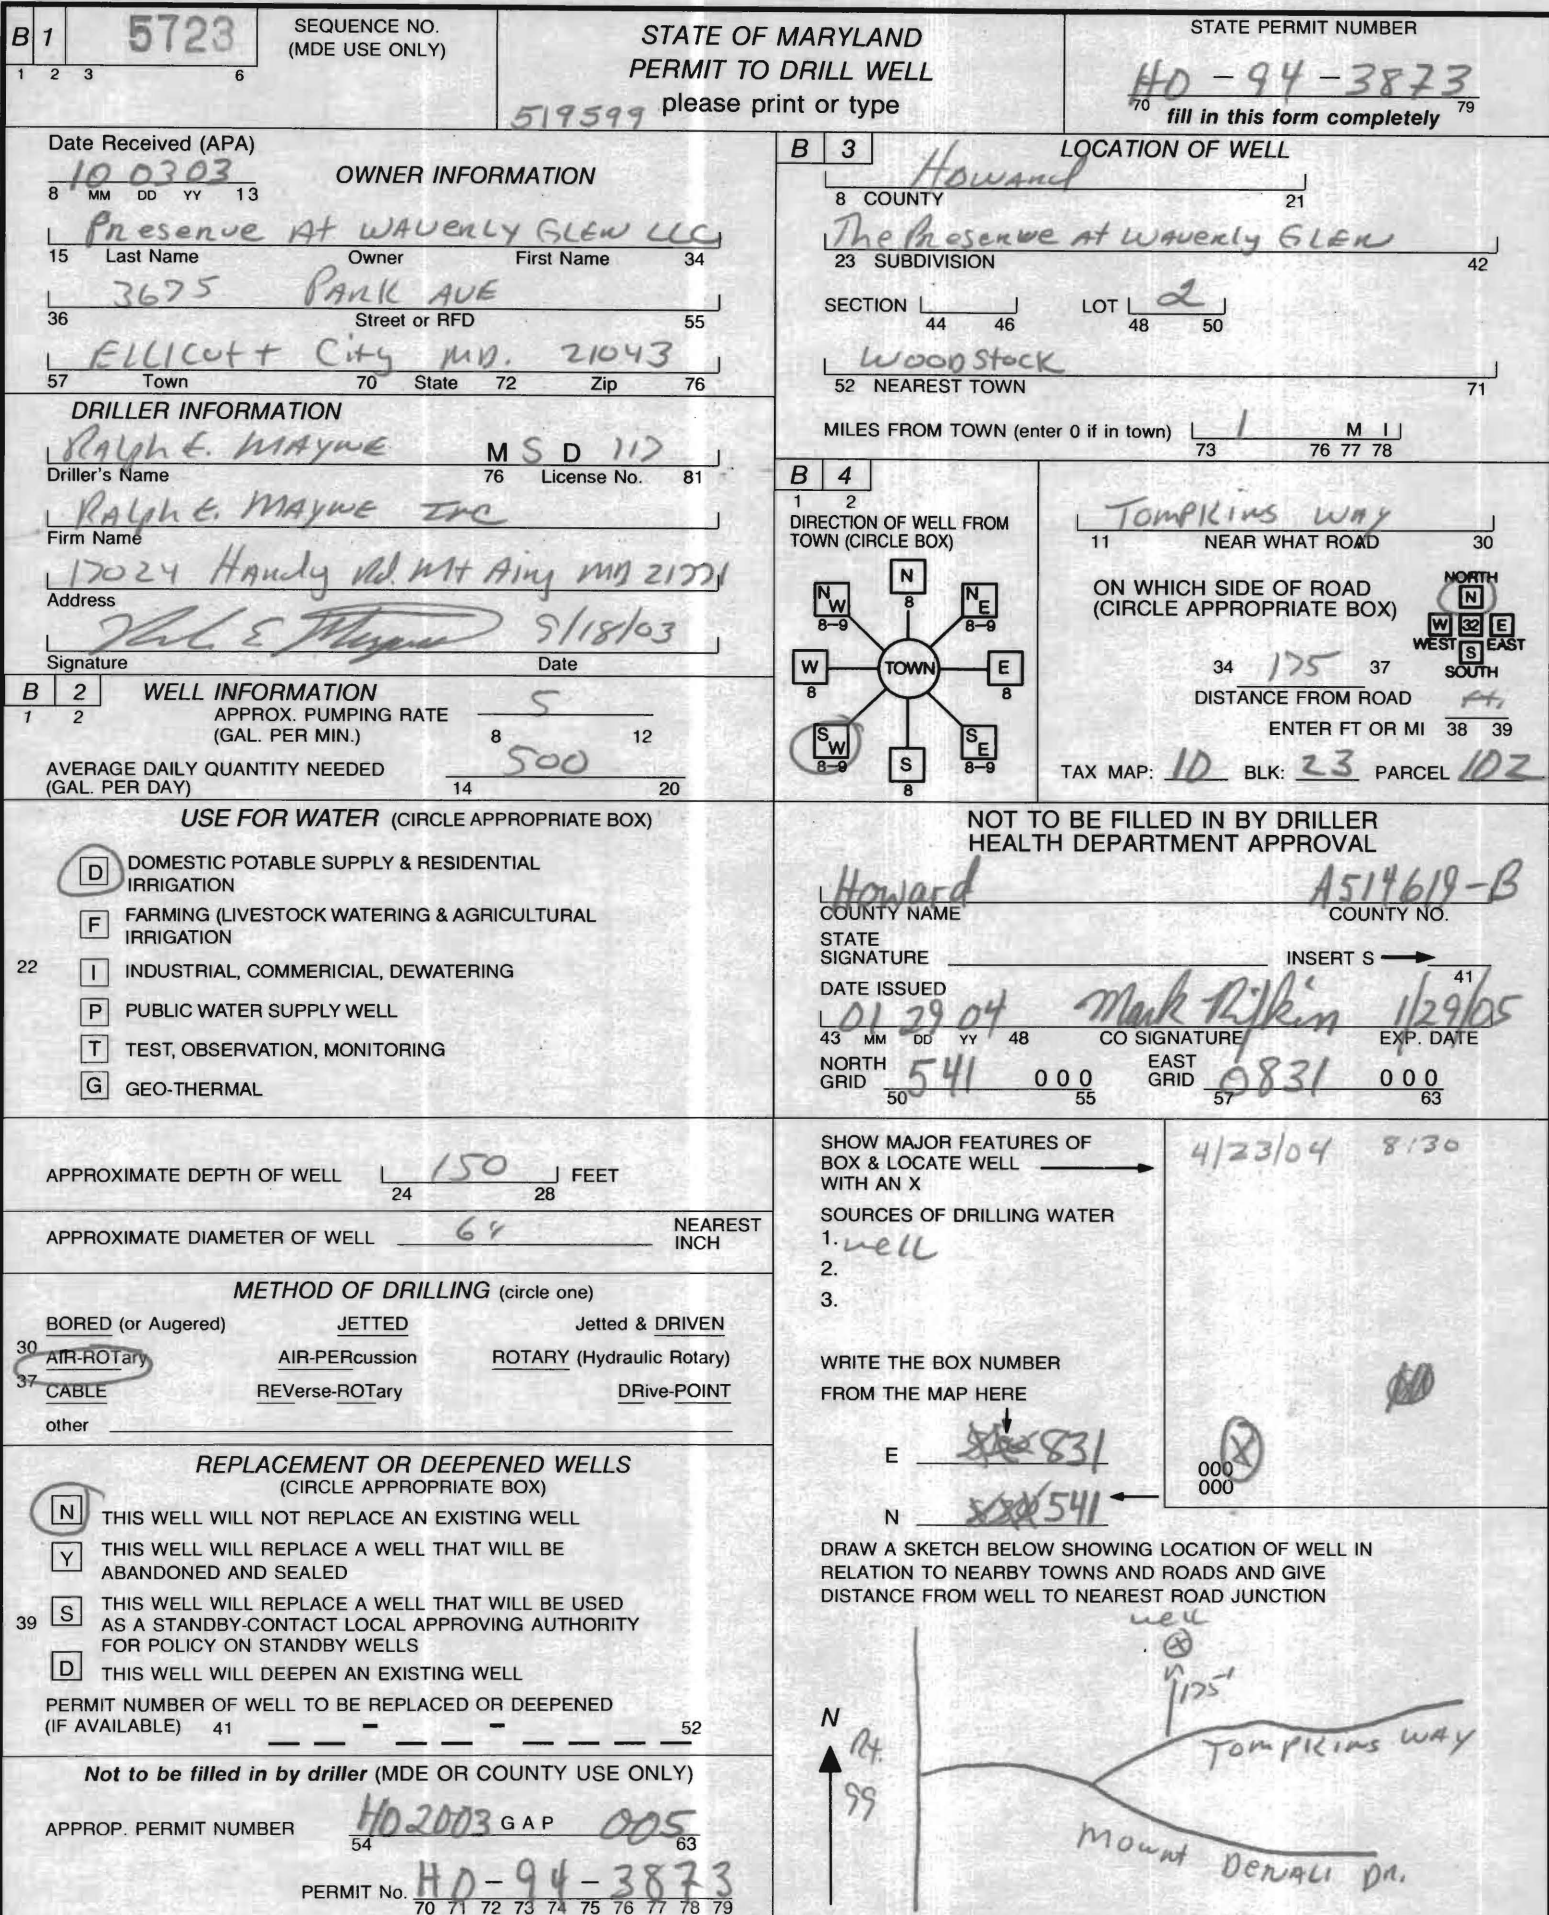 B 1 5723 SEQUENCE NO. (MDE USE ONLY)
1 2 3 6
STATE OF MARYLAND
PERMIT TO DRILL WELL
please print or type
519599
STATE PERMIT NUMBER
HO-94-3873
70 79
fill in this form completely
Date Received (APA)
10 03 03
8 MM DD YY 13
OWNER INFORMATION
Preserve At WAverly GLEN LLC
15 Last Name Owner First Name 34
3675 PARK AVE
36 Street or RFD 55
Ellicott City MD. 21043
57 Town 70 State 72 Zip 76
DRILLER INFORMATION
Ralph E. MAYNE M S D 117
Driller's Name 76 License No. 81
RAlph E. MAYNE Inc
Firm Name
17024 Handy Rd. Mt Airy MD 21771
Address
9/18/03
Signature Date
B 2 WELL INFORMATION
1 2
APPROX. PUMPING RATE 5
(GAL. PER MIN.) 8 12
AVERAGE DAILY QUANTITY NEEDED 500
(GAL. PER DAY) 14 20
USE FOR WATER (CIRCLE APPROPRIATE BOX)
D DOMESTIC POTABLE SUPPLY & RESIDENTIAL
IRRIGATION
F FARMING (LIVESTOCK WATERING & AGRICULTURAL
IRRIGATION
22 I INDUSTRIAL, COMMERICIAL, DEWATERING
P PUBLIC WATER SUPPLY WELL
T TEST, OBSERVATION, MONITORING
G GEO-THERMAL
APPROXIMATE DEPTH OF WELL 150 FEET
24 28
APPROXIMATE DIAMETER OF WELL NEAREST
INCH
METHOD OF DRILLING (circle one)
BORED (or Augered) JETTED Jetted & DRIVEN
30 AIR-ROTary AIR-PERcussion ROTARY (Hydraulic Rotary)
37 CABLE REVerse-ROTary DRive-POINT
other
REPLACEMENT OR DEEPENED WELLS
(CIRCLE APPROPRIATE BOX)
N THIS WELL WILL NOT REPLACE AN EXISTING WELL
Y THIS WELL WILL REPLACE A WELL THAT WILL BE
ABANDONED AND SEALED
39 S THIS WELL WILL REPLACE A WELL THAT WILL BE USED
AS A STANDBY-CONTACT LOCAL APPROVING AUTHORITY
FOR POLICY ON STANDBY WELLS
D THIS WELL WILL DEEPEN AN EXISTING WELL
PERMIT NUMBER OF WELL TO BE REPLACED OR DEEPENED
(IF AVAILABLE) 41 - - 52
Not to be filled in by driller (MDE OR COUNTY USE ONLY)
APPROP. PERMIT NUMBER HO2003 G A P 005
54 63
PERMIT No. HO-94-3873
70 71 72 73 74 75 76 77 78 79
B 3 LOCATION OF WELL
Howard
8 COUNTY 21
The Preserve At Waverly GLEN
23 SUBDIVISION 42
SECTION LOT 2
44 46 48 50
WOODStock
52 NEAREST TOWN 71
MILES FROM TOWN (enter 0 if in town) 1 M I
73 76 77 78
B 4
1 2
DIRECTION OF WELL FROM
TOWN (CIRCLE BOX)
N 8
NW 8-9
NE 8-9
W 8
TOWN
E 8
SW 8-9
S 8
SE 8-9
Tompkins WAY
11 NEAR WHAT ROAD 30
ON WHICH SIDE OF ROAD
(CIRCLE APPROPRIATE BOX)
NORTH
N
W 32 E
WEST S EAST
SOUTH
34 175 37
DISTANCE FROM ROAD ft.
ENTER FT OR MI 38 39
TAX MAP: 10 BLK: 23 PARCEL 102
NOT TO BE FILLED IN BY DRILLER
HEALTH DEPARTMENT APPROVAL
Howard A514619-B
COUNTY NAME COUNTY NO.
STATE
SIGNATURE INSERT S
41
DATE ISSUED
01 29 04 Mark Rifkin 1/29/05
43 MM DD YY 48 CO SIGNATURE EXP. DATE
NORTH
GRID 541 000
50 55
EAST
GRID 0831 000
57 63
SHOW MAJOR FEATURES OF
BOX & LOCATE WELL
WITH AN X
4/23/04 8:30
SOURCES OF DRILLING WATER
1. well
2.
3.
WRITE THE BOX NUMBER
FROM THE MAP HERE
E 831
N 541
000
000
X
DRAW A SKETCH BELOW SHOWING LOCATION OF WELL IN
RELATION TO NEARBY TOWNS AND ROADS AND GIVE
DISTANCE FROM WELL TO NEAREST ROAD JUNCTION
well
X
175'
N
Rt.
99
Tompkins WAY
Mount DENALI DR.